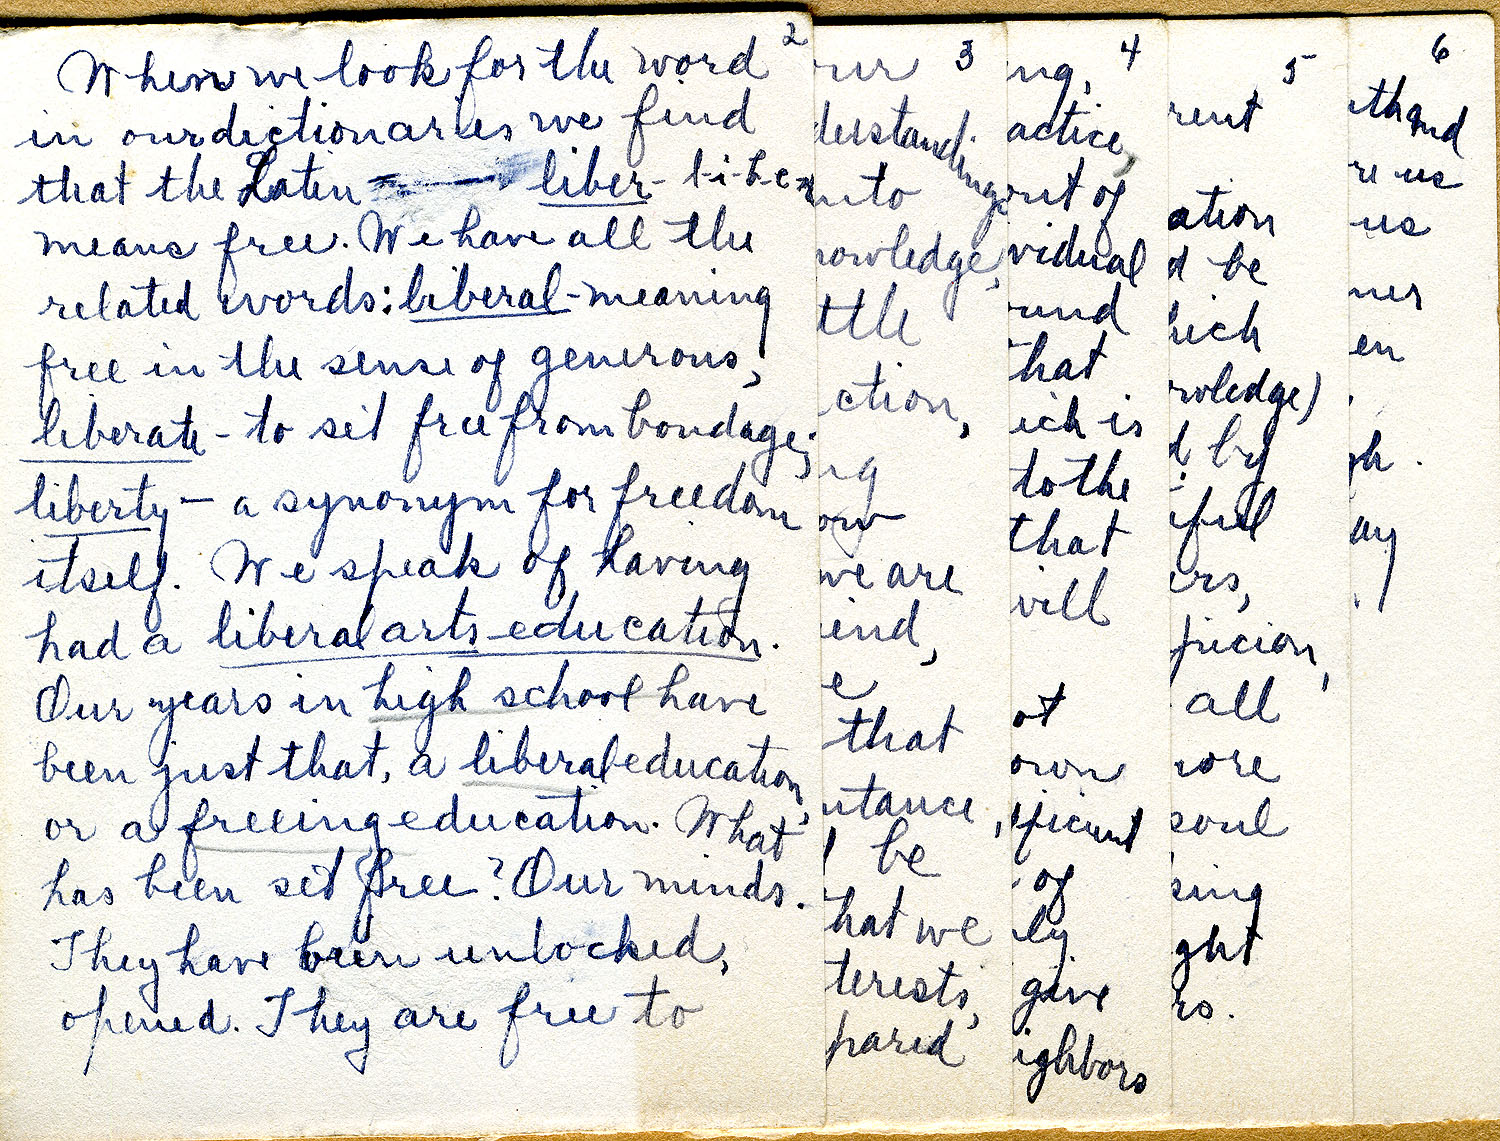 2
When we look for the word
in our dictionaries we find
that the Latin liber - l-i-b-e-r
means free. We have all the
related words: liberal - meaning
free in the sense of generous,
liberate - to set free from bondage;
liberty - a synonym for freedom
itself. We speak of having
had a liberal arts education.
Our years in high school have
been just that, a liberal education,
or a freeing education. What
has been set free? Our minds.
They have been unlocked,
opened. They are free to
3
our
derstandings
into
nowledge,
ttle
ction,
ng
ow
we are
ind,
e
that
ntance,
be
hat we
terests,
pared
4
ng,
actice,
out of
vidual
ound
that
ich is
to the
that
will
ot
own
ificent
of
ly
give
ighbors
5
rent
ation
d be
hich
owledge)
d by
iful
ers,
picion,
all
more
soul
sing
ght
rs.
6
ith and
re us
us
ner
en
gh.
ay